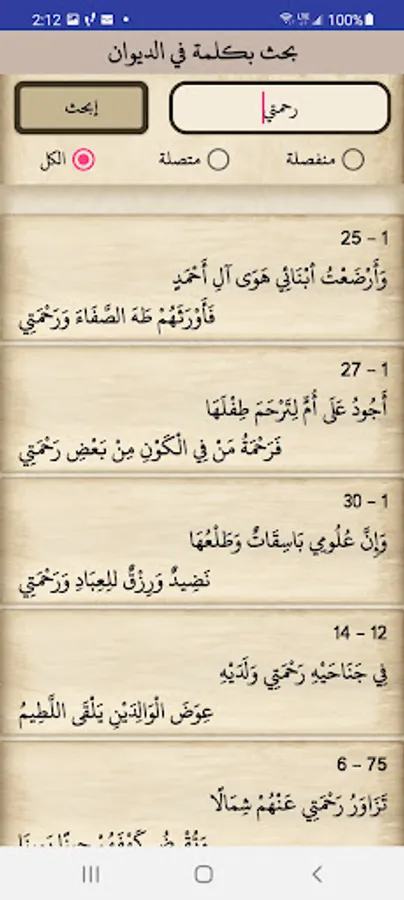 2:12
100%
بحث بكلمة في الديوان
رحمتي
إبحث
منفصلة
متصلة
الكل
25 – 1
وَأَرْضَعْتُ أَبْنَائِي هَوَى آلِ أَحْمَدٍ
فَأَوْرَثَهُمْ طَهَ الصَّفَاءَ وَرَحْمَتِي
27 – 1
أَجُودُ عَلَى أُمٍّ لِتَرْحَمَ طِفْلَهَا
فَرَحْمَةُ مَنْ فِي الْكَوْنِ مِنْ بَعْضِ رَحْمَتِي
30 – 1
وَإِنَّ عُلُومِي بَاسِقَاتٌ وَطَلْعُهَا
نَضِيدٌ وَرِزْقٌ للِعِبَادِ وَرَحْمَتِي
14 – 12
فِي جَنَاحَيْهِ رَحْمَتِي وَلَدَيْهِ
عِوَضَ الْوَالِدَيْنِ يَلْقَى اللَّطِيمُ
6 – 75
تَزَاوَرُ رَحْمَتِي عَنْهُمْ شِمَالًا